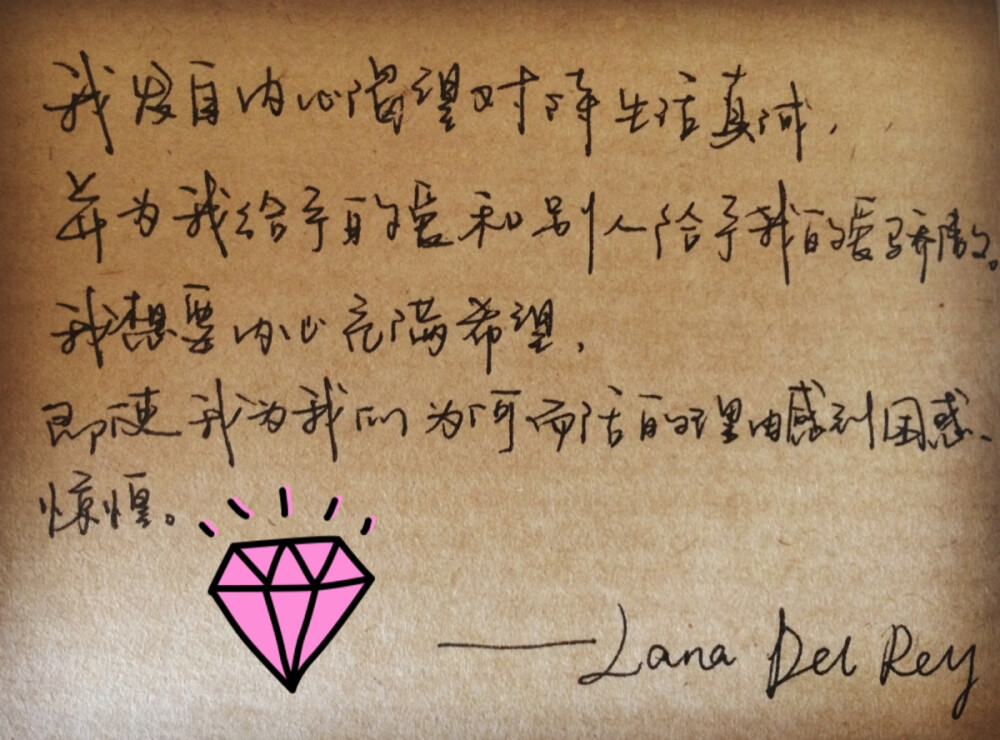 我发自内心渴望对待生活真诚，
并为我给予的爱和别人给予我的爱骄傲。
我想要内心充满希望，
即便我为我们为何而活的理由感到困惑、
惊惶。
——Lana Del Rey